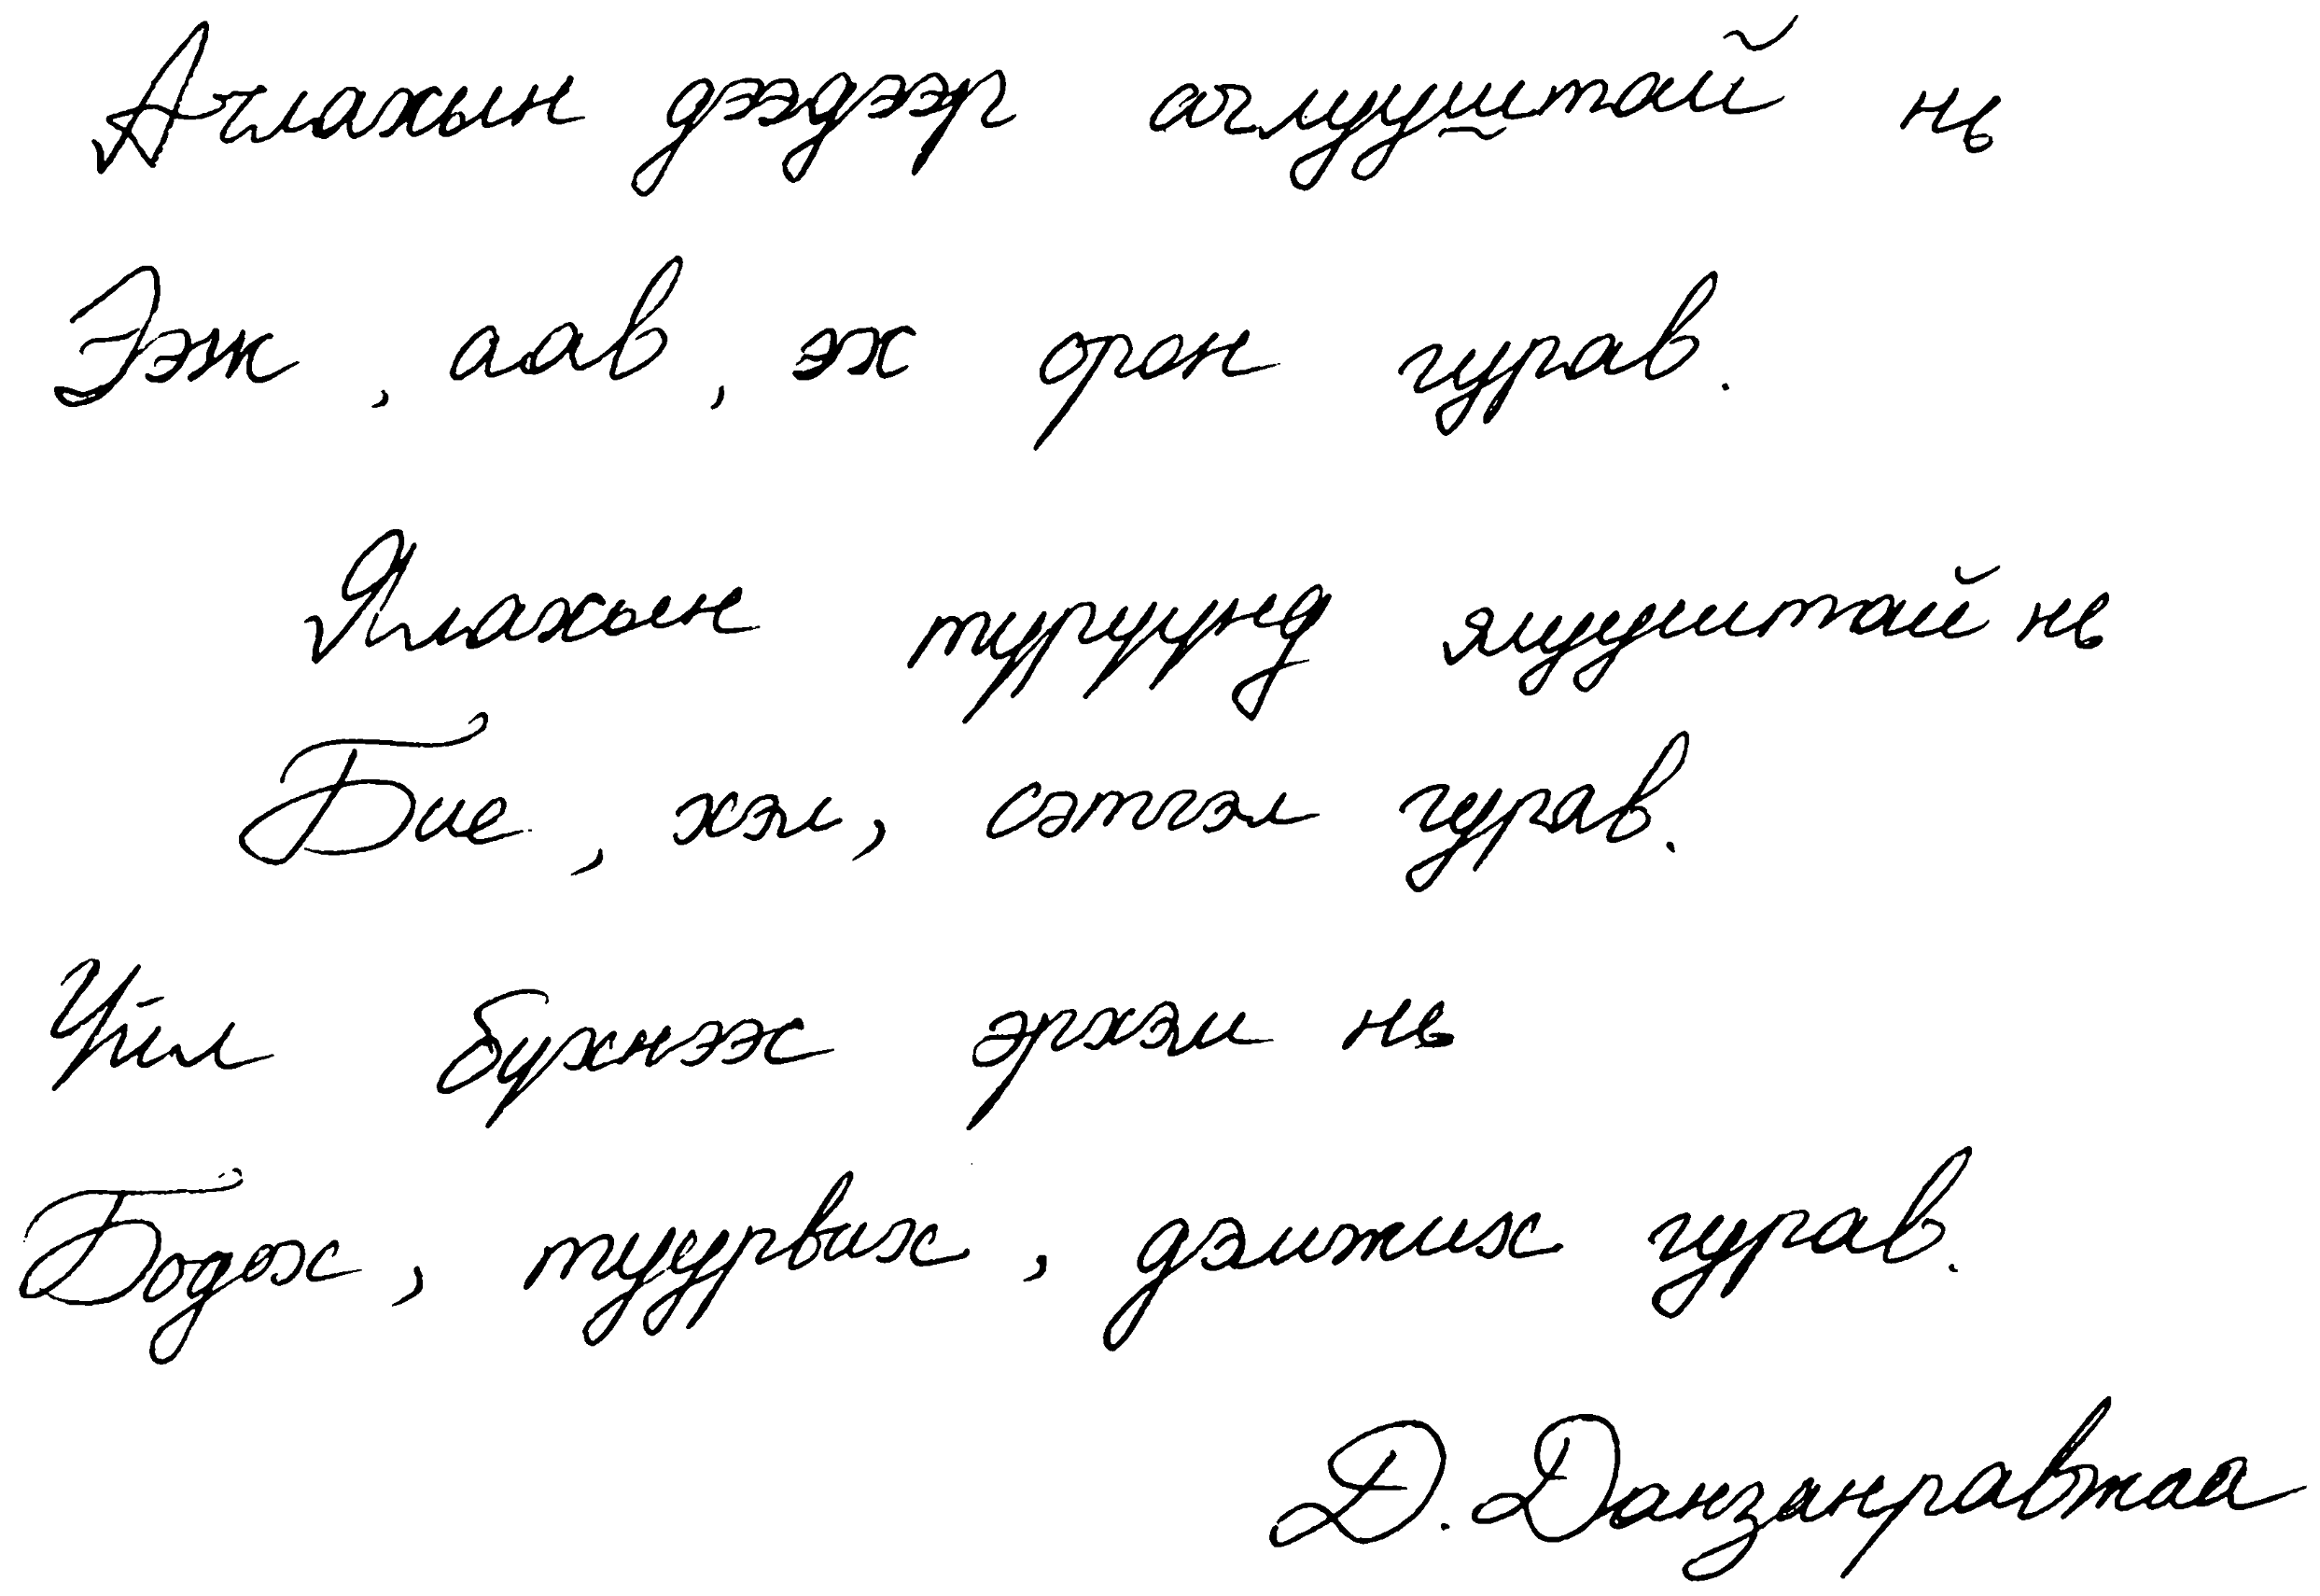 Ачлахын дээдээр ачлууштай нь
Ээж, аав, эх орон гурав.
Ялахын түрүүнд ялууштай нь
Бие, хэл, сэтгэл гурав.
Үйл бүрнээс эрхэм нь
Бодох, туурвих, дэмжих гурав.
Д. Данзанравжаа